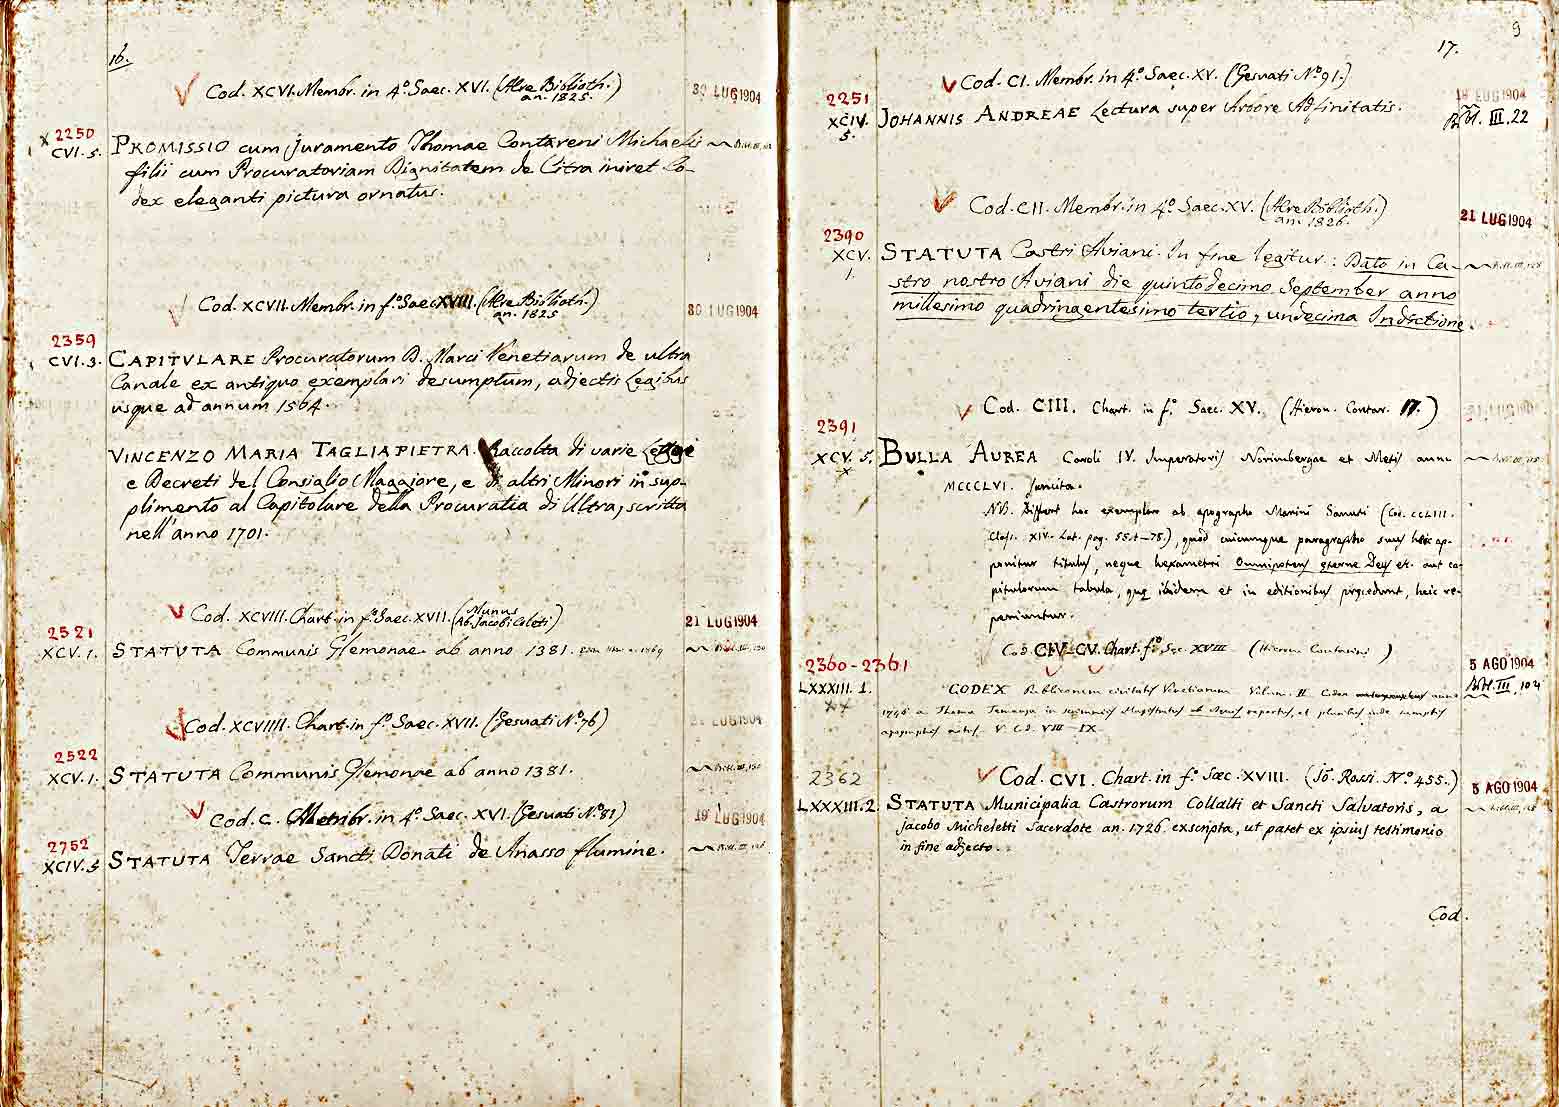 16.
Cod. XCVI. Membr. in 4º. Saec. XVI. (Aere Biblioth. an. 1825.)
30 LUG 1904
2250
CVI. 5.
PROMISSIO cum juramento Thomae Contareni Michaelis
filii cum Procuratoriam Dignitatem de Citra iniret Co-
dex eleganti pictura ornatus.
Cod. XCVII. Membr. in fº. Saec. XVIII. (Aere Biblioth. an. 1825)
30 LUG 1904
2359
CVI. 3.
CAPITVLARE Procuratorum D. Marci Venetiarum de ultra
Canale ex antiquo exemplari desumptum, adjectis Legibus
usque ad annum 1564.
VINCENZO MARIA TAGLIAPIETRA. Raccolta di varie Leggi
e Decreti del Consiglio Maggiore, e di altri Minori in sup-
plimento al Capitolare della Procuratia di Ultra, scritta
nell'anno 1701.
Cod. XCVIII. Chart. in fº. Saec. XVII. (Munus Ab. Jacobi Coleti)
21 LUG 1904
2521
XCV. 1.
STATUTA Communis Glemonae ab anno 1381.
Cod. XCVIIII. Chart. in fº. Saec. XVII. (Gesuati Nº. 76)
21 LUG 1904
2522
XCV. 1.
STATUTA Communis Glemonae ab anno 1381.
Cod. C. Membr. in 4º. Saec. XVI. (Gesuati Nº. 81)
19 LUG 1904
2752
XCIV. 5
STATUTA Terrae Sancti Donati de Anasso flumine.
9
17.
Cod. CI. Membr. in 4º. Saec. XV. (Gesuati Nº. 91.)
19 LUG 1904
2251
XCIV. 5.
JOHANNIS ANDREAE Lectura super Arbore Adfinitatis.
Bibl. III. 22
Cod. CII. Membr. in 4º. Saec. XV. (Aere Biblioth. an. 1826.)
21 LUG 1904
2390
XCV. 1.
STATUTA Castri Aviani. In fine legitur: Dato in Ca-
stro nostro Aviani die quintodecimo September anno
millesimo quadringentesimo tertio, undecima Indictione.
Cod. CIII. Chart. in fº. Saec. XV. (Hieron. Contar. 17.)
21 LUG 1904
2391
XCV. 5.
BULLA AUREA Caroli IV. Imperatoris Norimbergae et Metis anno
MCCCLVI. sancita.
NB. Differt hoc exemplar ab apographo Marini Sanuti (Cod. CCLIII.
Class. XIV. Lat. pag. 55.t–75.), quod cuicumque paragrapho suus heic ap-
ponitur titulus, neque hexametri Omnipotens eterne Deus etc. aut ca-
pitulorum tabula, quę ibidem et in editionibus pręcedunt, heic re-
periuntur.
Cod. CIV–CV. Chart. fº. Sec. XVIII (Hieron. Contarini)
5 AGO 1904
2360 - 2361
LXXXIII. 1.
CODEX Publicorum civitatis Venetiarum Volum. II
Bibl. III, 104
apographis V. Cod. VIII–IX
2362
Cod. CVI. Chart. in fº. Sæc. XVIII. (Jo. Rossi. Nº. 455.)
5 AGO 1904
LXXXIII. 2.
STATUTA Municipalia Castrorum Collalti et Sancti Salvatoris, a
Jacobo Micheletti Sacerdote an. 1726 exscripta, ut patet ex ipsius testimonio
in fine adjecto.
Cod.